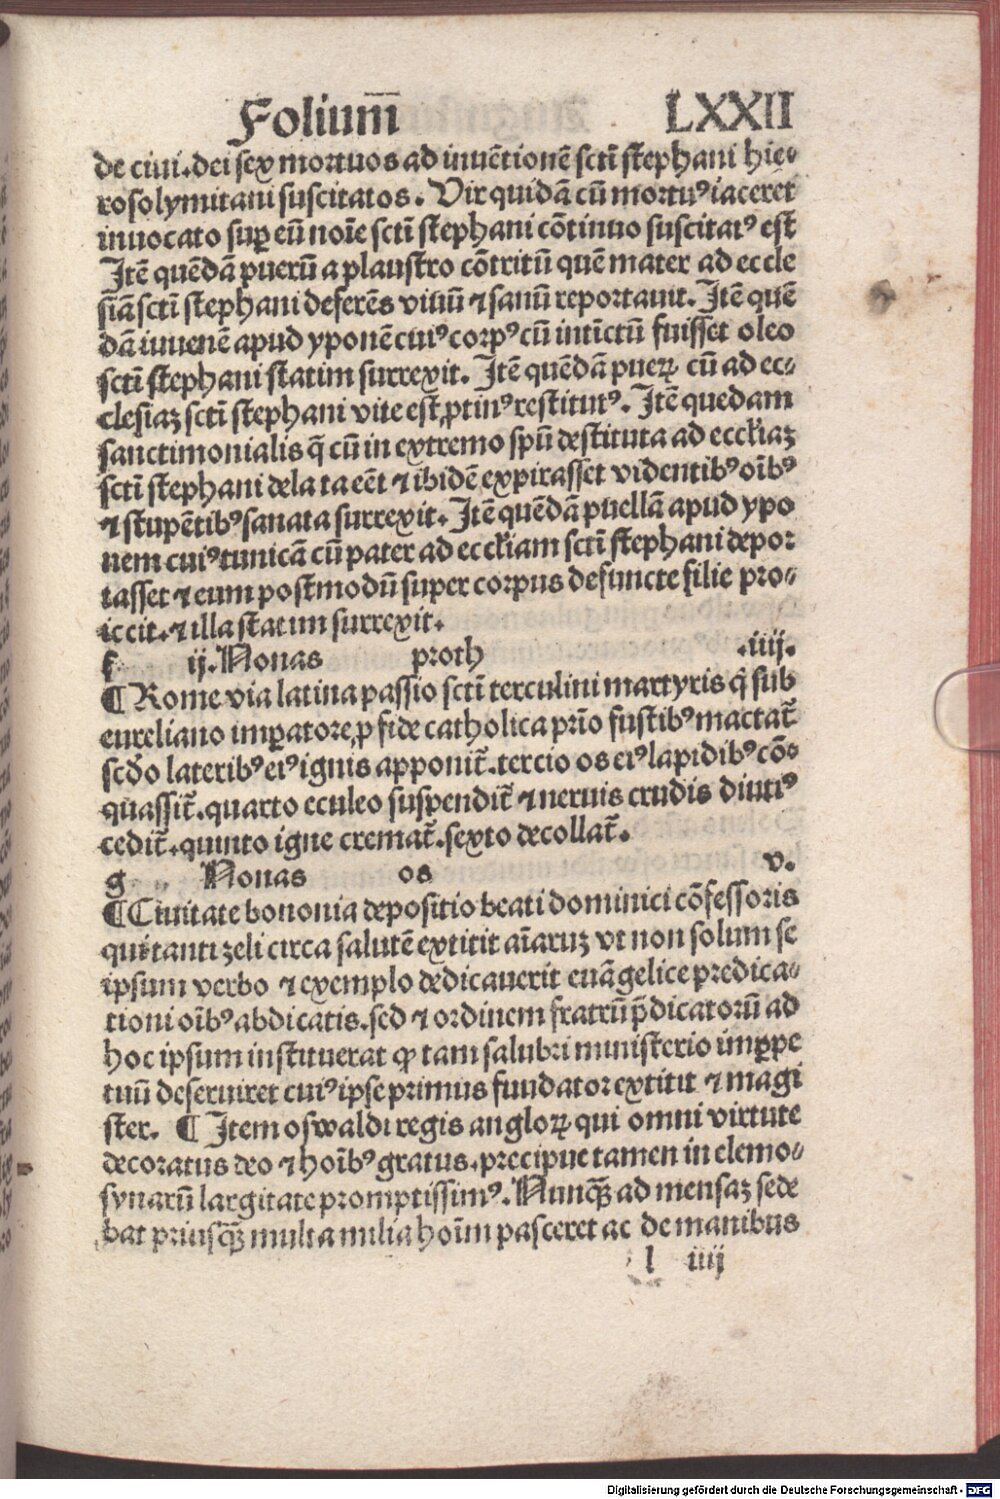 Folium̄ LXXII
de ciui. dei sex mortuos ad inuētionē sct̄i stephani hie⸗
rosolymitani suscitatos. Vir quidā cū mortuꝰ iaceret
inuocato suꝑ eū noīe sct̄i stephani cōtinuo suscitatꝰ est
Itē quēdā puerū a plaustro cōtritū quē mater ad eccle
siā sct̄i stephani deferēs viuū ⁊ sanū reportauit. Itē quē
dā iuuenē apud yponē cuiꝰ corpꝰ cū intīctū fuisset oleo
sct̄i stephani statim surrexit. Itē quēdā pueꝝ cū ad ec⸗
clesiaꝫ sct̄i stephani vite est ꝓtinꝰ restitutꝰ. Itē quedam
sanctimonialis q̄ cū in extremo spū destituta ad eccłiaꝫ
sct̄i stephani dela ta eēt ⁊ ibidē expirasset videntibꝰ oībꝰ
⁊ stupētibꝰ sanata surrexit. Itē quēdā puellā apud ypo
nem cuiꝰ tunicā cū pater ad eccłiam sct̄i stephani depor
tasset ⁊ eum postmodū super corpus defuncte filie pro⸗
iecit. ⁊ illa statim surrexit.
f ij. Nonas proth .iiij.
¶ Rome via latina passio sct̄i terculini martyris q̇ sub
eureliano imꝑatore ꝓ fide catholica prīo fustibꝰ mactat̄
scd̄o lateribꝰ eiꝰ ignis apponit̄. tercio os eiꝰ lapidibꝰ cō⸗
quassit̄. quarto eculeo suspendit̄ ⁊ neruis crudis diutiꝰ
cedit̄. quinto igne cremat̄. sexto decollat̄.
g Nonas os v.
¶ Ciuitate bononia depositio beati dominici cōfessoris
qui tanti zeli circa salutē extitit aīaruꝫ vt non solum se
ipsum verbo ⁊ exemplo dedicauerit euāgelice predica⸗
tioni oībꝰ abdicatis. sed ⁊ ordinem fratrū p̄dicatorū ad
hoc ipsum instituerat ꝙ tam salubri ministerio imꝑpe
tuū deseruiret cuiꝰ ipse primus fundator extitit ⁊ magi
ster. ¶ Item oswaldi regis angloꝝ qui omni virtute
decoratus deo ⁊ hoībꝰ gratus. precipue tamen in elemo⸗
synarū largitate promptissimꝰ. Nunqꝫ̄ ad mensaꝫ sede
bat priusqꝫ̄ multa milia hoīm pasceret ac de manibus
l iiij
Digitalisierung gefördert durch die Deutsche Forschungsgemeinschaft - DFG